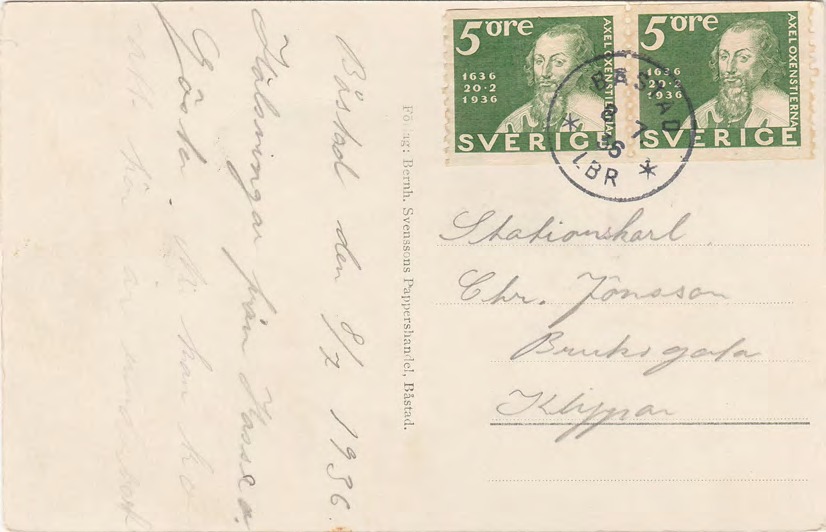 5 öre
1636
20·2
1936
AXEL OXENSTIERNA
SVERIGE
5 öre
1636
20·2
1936
AXEL OXENSTIERNA
SVERIGE
BÅSTAD
8 7
36
LBR
Båstad den 8/7 1936.
Hälsningar från Hasse o.
Gösta. Ni kan
att här är underbart
Förlag: Bernh. Svenssons Pappershandel, Båstad.
Stationskarl
Chr. Jönsson
Bruksgata
Klippan